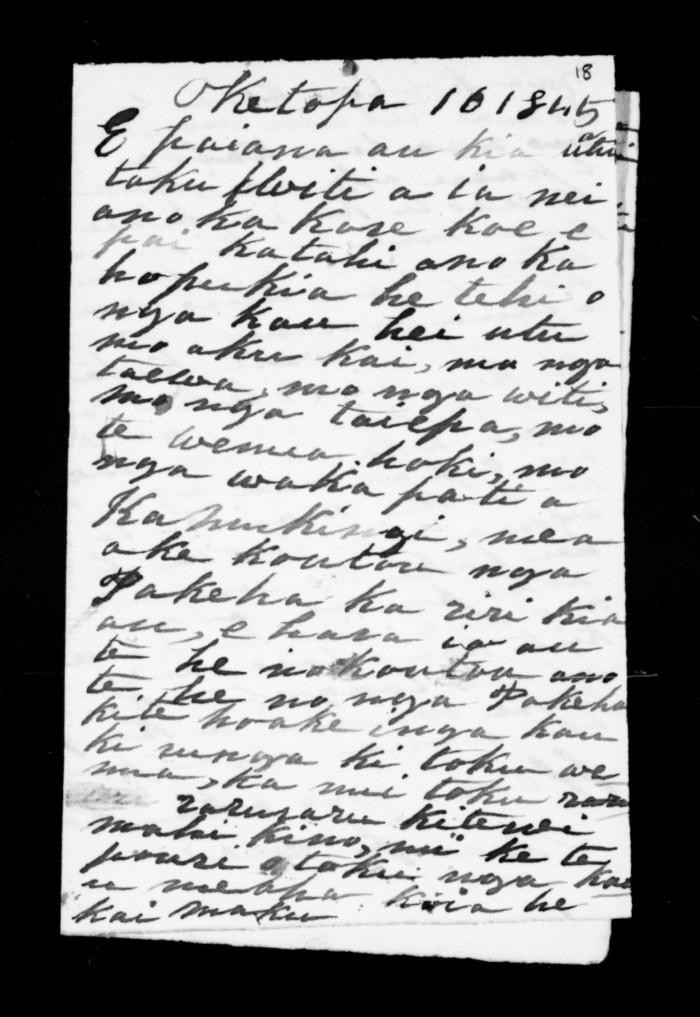 18
Oketopa 16 1845
E paiana au kia utua
toku Witi a ia nei
ano ka kore koe e
pai katahi ano ka
hopukia he tehi o
nga kau hei utu
mo aku kai, mo nga
taewa, mo nga witi,
mo nga taiepa, mo
te wenua hoki, mo
nga waka pati a
Kahukingi, mea
ake koutou nga
Pakeha ka riri kia
au, e hara ia au
te he no koutou ano
te he no nga Pakeha
kite hoake inga kau
ki runga ki toku we
nua, ka nui toku raru
raruraru kitenei
mahi kino, nui ke te
pouri o toku nga kau
u meapa koia he
kai maku